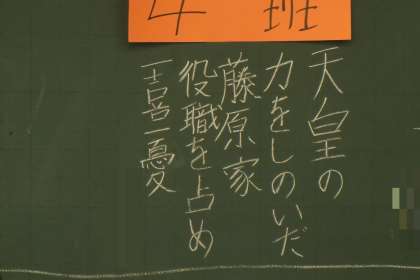 4 班
天皇の
力をしのいだ
藤原家
役職を占め
一喜一憂